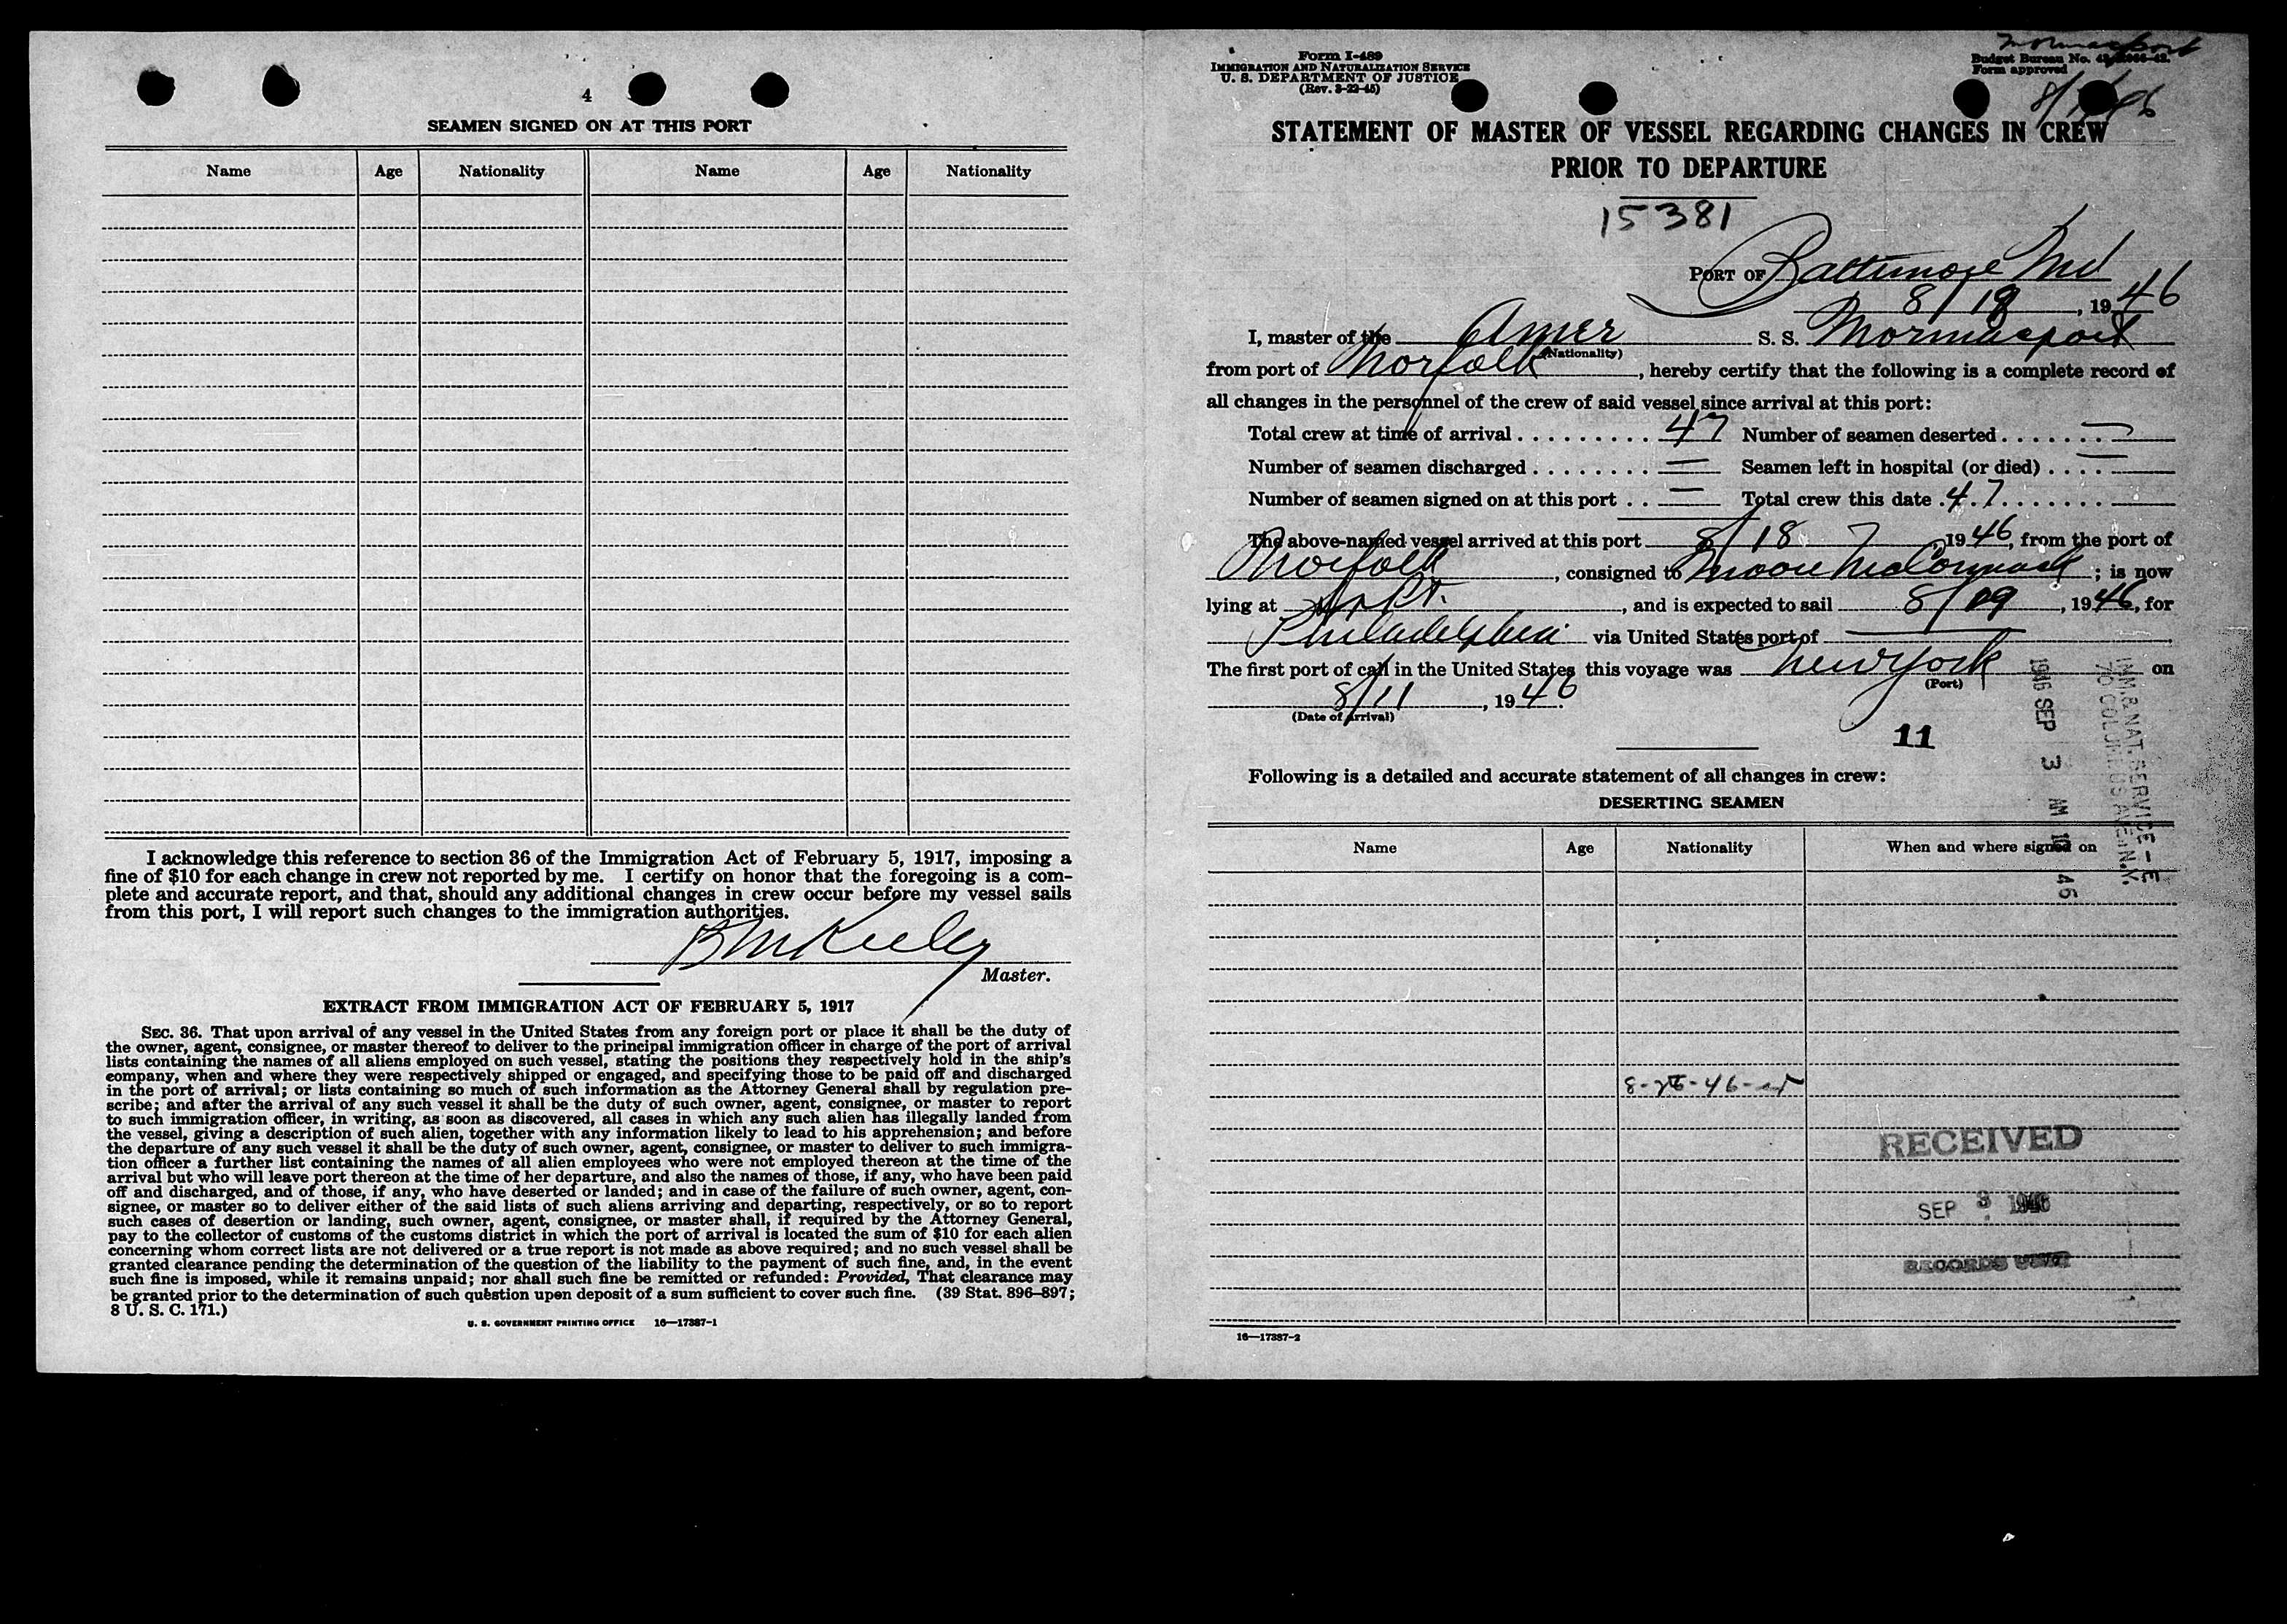 4
SEAMEN SIGNED ON AT THIS PORT
Name Age Nationality Name Age Nationality
I acknowledge this reference to section 36 of the Immigration Act of February 5, 1917, imposing a
fine of $10 for each change in crew not reported by me. I certify on honor that the foregoing is a com-
plete and accurate report, and that, should any additional changes in crew occur before my vessel sails
from this port, I will report such changes to the immigration authorities.
Master.
EXTRACT FROM IMMIGRATION ACT OF FEBRUARY 5, 1917
SEC. 36. That upon arrival of any vessel in the United States from any foreign port or place it shall be the duty of
the owner, agent, consignee, or master thereof to deliver to the principal immigration officer in charge of the port of arrival
lists containing the names of all aliens employed on such vessel, stating the positions they respectively hold in the ship's
company, when and where they were respectively shipped or engaged, and specifying those to be paid off and discharged
in the port of arrival; or lists containing so much of such information as the Attorney General shall by regulation pre-
scribe; and after the arrival of any such vessel it shall be the duty of such owner, agent, consignee, or master to report
to such immigration officer, in writing, as soon as discovered, all cases in which any such alien has illegally landed from
the vessel, giving a description of such alien, together with any information likely to lead to his apprehension; and before
the departure of any such vessel it shall be the duty of such owner, agent, consignee, or master to deliver to such immigra-
tion officer a further list containing the names of all alien employees who were not employed thereon at the time of the
arrival but who will leave port thereon at the time of her departure, and also the names of those, if any, who have been paid
off and discharged, and of those, if any, who have deserted or landed; and in case of the failure of such owner, agent, con-
signee, or master so to deliver either of the said lists of such aliens arriving and departing, respectively, or so to report
such cases of desertion or landing, such owner, agent, consignee, or master shall, if required by the Attorney General,
pay to the collector of customs of the customs district in which the port of arrival is located the sum of $10 for each alien
concerning whom correct lists are not delivered or a true report is not made as above required; and no such vessel shall be
granted clearance pending the determination of the question of the liability to the payment of such fine, and, in the event
such fine is imposed, while it remains unpaid; nor shall such fine be remitted or refunded: Provided, That clearance may
be granted prior to the determination of such question upon deposit of a sum sufficient to cover such fine. (39 Stat. 896–897;
8 U. S. C. 171.)
U. S. GOVERNMENT PRINTING OFFICE 16—17387-1
Form I-489
IMMIGRATION AND NATURALIZATION SERVICE
U. S. DEPARTMENT OF JUSTICE
(Rev. 3-22-45)
Mormacport
Budget Bureau No.
Form approved
STATEMENT OF MASTER OF VESSEL REGARDING CHANGES IN CREW
PRIOR TO DEPARTURE
15381
PORT OF Baltimore Md
8/18, 1946
I, master of the Amer S. S. Mormacport
(Nationality)
from port of Norfolk, hereby certify that the following is a complete record of
all changes in the personnel of the crew of said vessel since arrival at this port:
Total crew at time of arrival 47 Number of seamen deserted —
Number of seamen discharged — Seamen left in hospital (or died) —
Number of seamen signed on at this port — Total crew this date 47
The above-named vessel arrived at this port 8/18, 1946, from the port of
Norfolk, consigned to Moore McCormack; is now
lying at , and is expected to sail 8/19, 1946, for
Philadelphia via United States port of —
The first port of call in the United States this voyage was New York on
(Port)
8/11, 1946.
(Date of arrival)
11
Following is a detailed and accurate statement of all changes in crew:
DESERTING SEAMEN
Name Age Nationality When and where signed on
IMM. & NAT. SERVICE - E
70 COLUMBUS AVE. N.Y.
1946 SEP 3 AM 10 46
RECEIVED
SEP 3 1946
RECORDS UNIT
16—17387-2